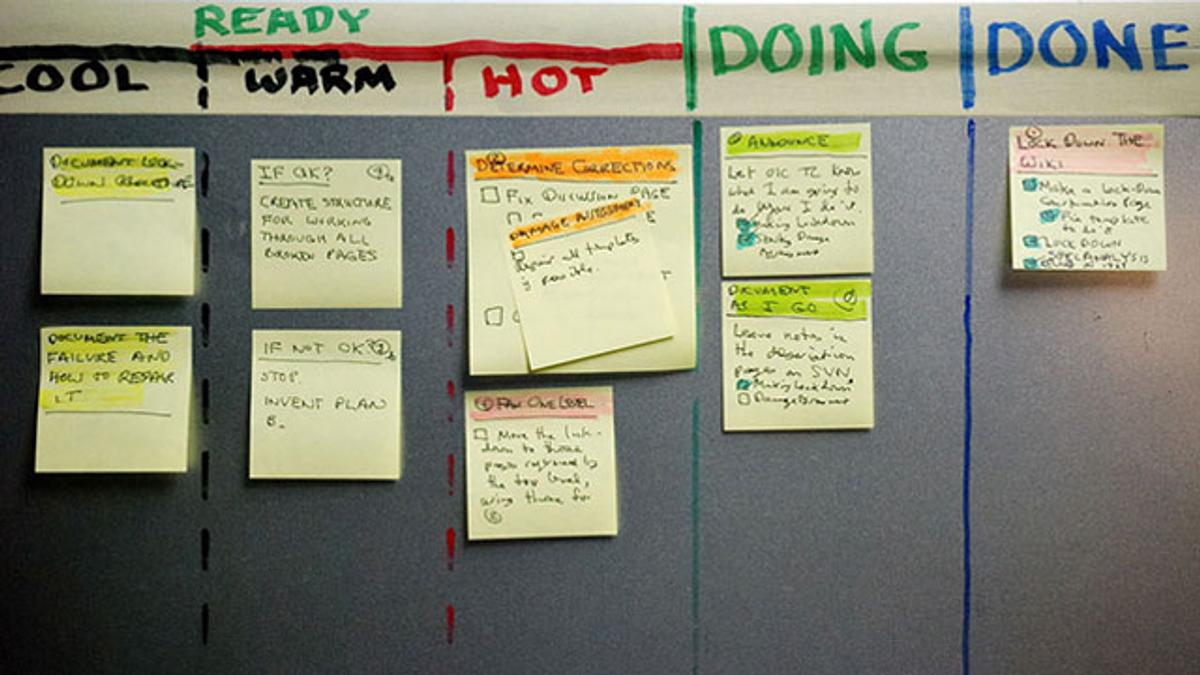 READY
COOL
WARM
HOT
DOING
DONE
DOCUMENT LOCK-
DOWN
DOCUMENT THE
FAILURE AND
HOW TO REPAIR
IT
IF OK?
CREATE STRUCTURE
FOR WORKING
THROUGH ALL
BROKEN PAGES
IF NOT OK?
STOP.
INVENT PLAN
B.
DETERMINE CORRECTIONS
FIX DISCUSSION PAGE
DAMAGE ASSESSMENT
Repair all templates
is possible.
ONE LEVEL
Move the lock-
down to those
pages
the top level,
using those for
ANNOUNCE
Let OLC TZ know
what I am going to
do before I do it.
Making Lockdown
Starting Damage
Assessment
DOCUMENT
AS I GO
Leave notes in
the observation
pages on SVN
Making Lockdown
Damage Assessment
LOCK DOWN THE
WIKI
Make a Lock-Down
Page
Fix template
to do it
LOCK DOWN